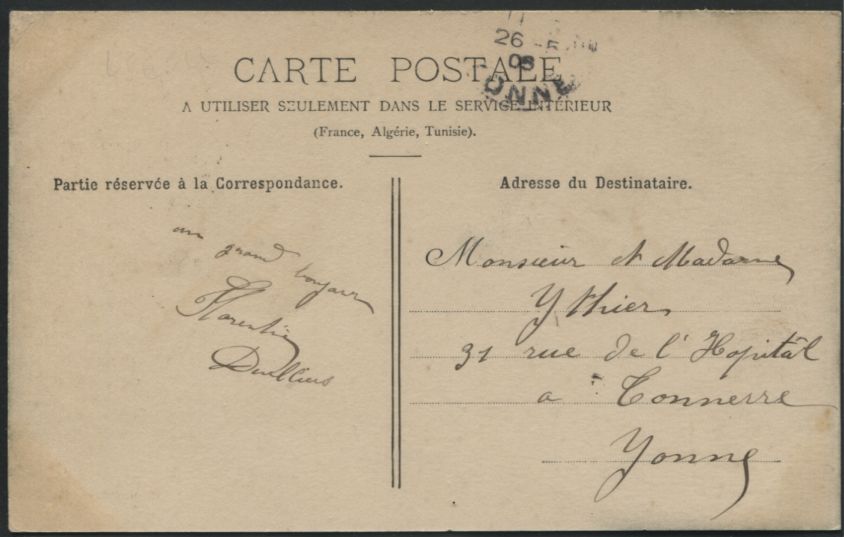 CARTE POSTALE
A UTILISER SEULEMENT DANS LE SERVICE INTÉRIEUR
(France, Algérie, Tunisie).
26 - 5
08
YONNE
Partie réservée à la Correspondance.
un grand bonjour
Florentin
Adresse du Destinataire.
Monsieur et Madame
Ythier
31 rue de l'Hopitâl
a Tonnerre
Yonne